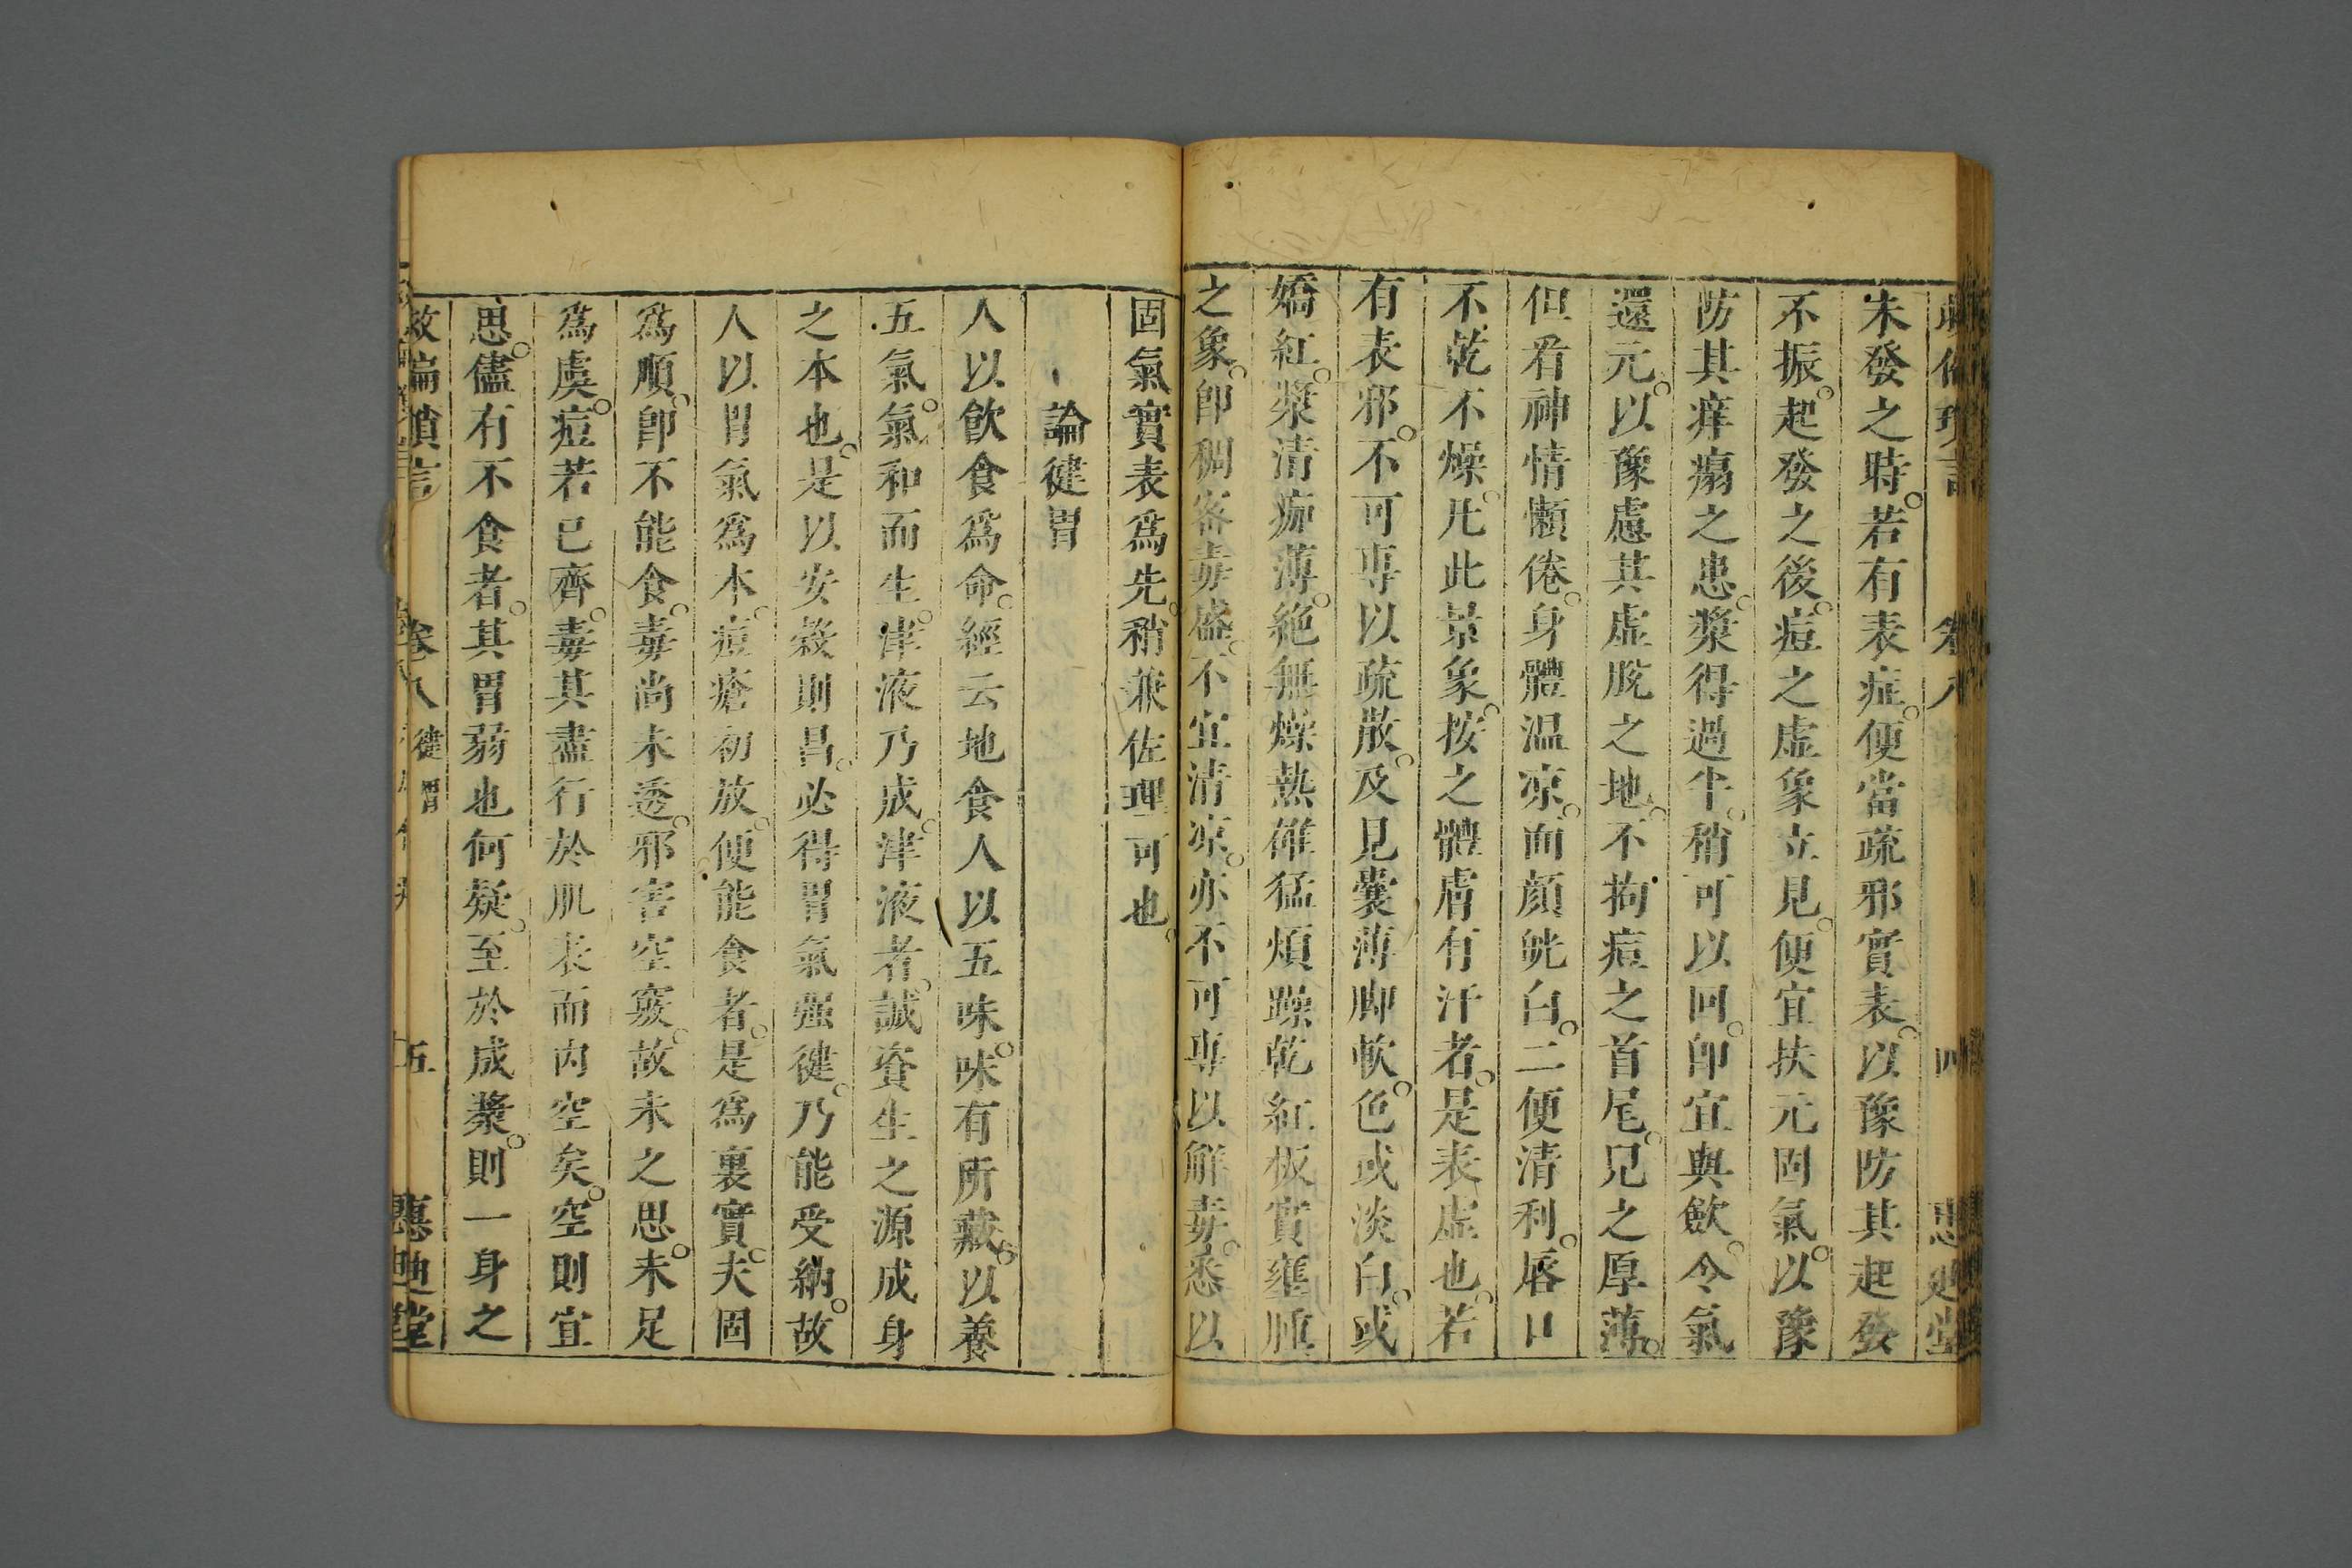 未發之時。若有表症。便當疏邪實表。以豫防其起發
不振。起發之後。痘之虛象立見。便宜扶元固氣。以豫
防其痒瘍之患。漿得過半。稍可以回。卽宜與飲。令氣
還元。以豫慮其虛脫之地。不拘痘之首尾。兄之厚薄。
但看神情懶倦。身體温凉。面顏㿠白。二便清利。唇口
不乾不燥。凡此景象。按之體膚有汗者。是表虛也。若
有表邪。不可專以疏散。及見囊薄脚軟。色或淡白。或
嬌紅。漿清痂薄。絶無燥熱雄猛煩躁乾紅板實壅腫
之象。卽稠密毒盛。不宜清凉。亦不可專以解毒。悉以
固氣實表爲先。稍兼佐理可也。
論健胃
人以飲食爲命。經云地食人以五味。味有所藏。以養
五氣。氣和而生。津液乃成。津液者。誠資生之源成身
之本也。是以安穀則昌。必得胃氣强健。乃能受納。故
人以胃氣爲本。痘瘡初放。便能食者。是爲裏實。夫固
爲順。卽不能食。毒尚未透。邪害空竅。故未之思。未足
爲虞。痘若已齊。毒其盡行於肌表而内空矣。空則宜
思。儘有不食者。其胃弱也何疑。至於成漿。則一身之
卷八 健胃 五 惠廸堂